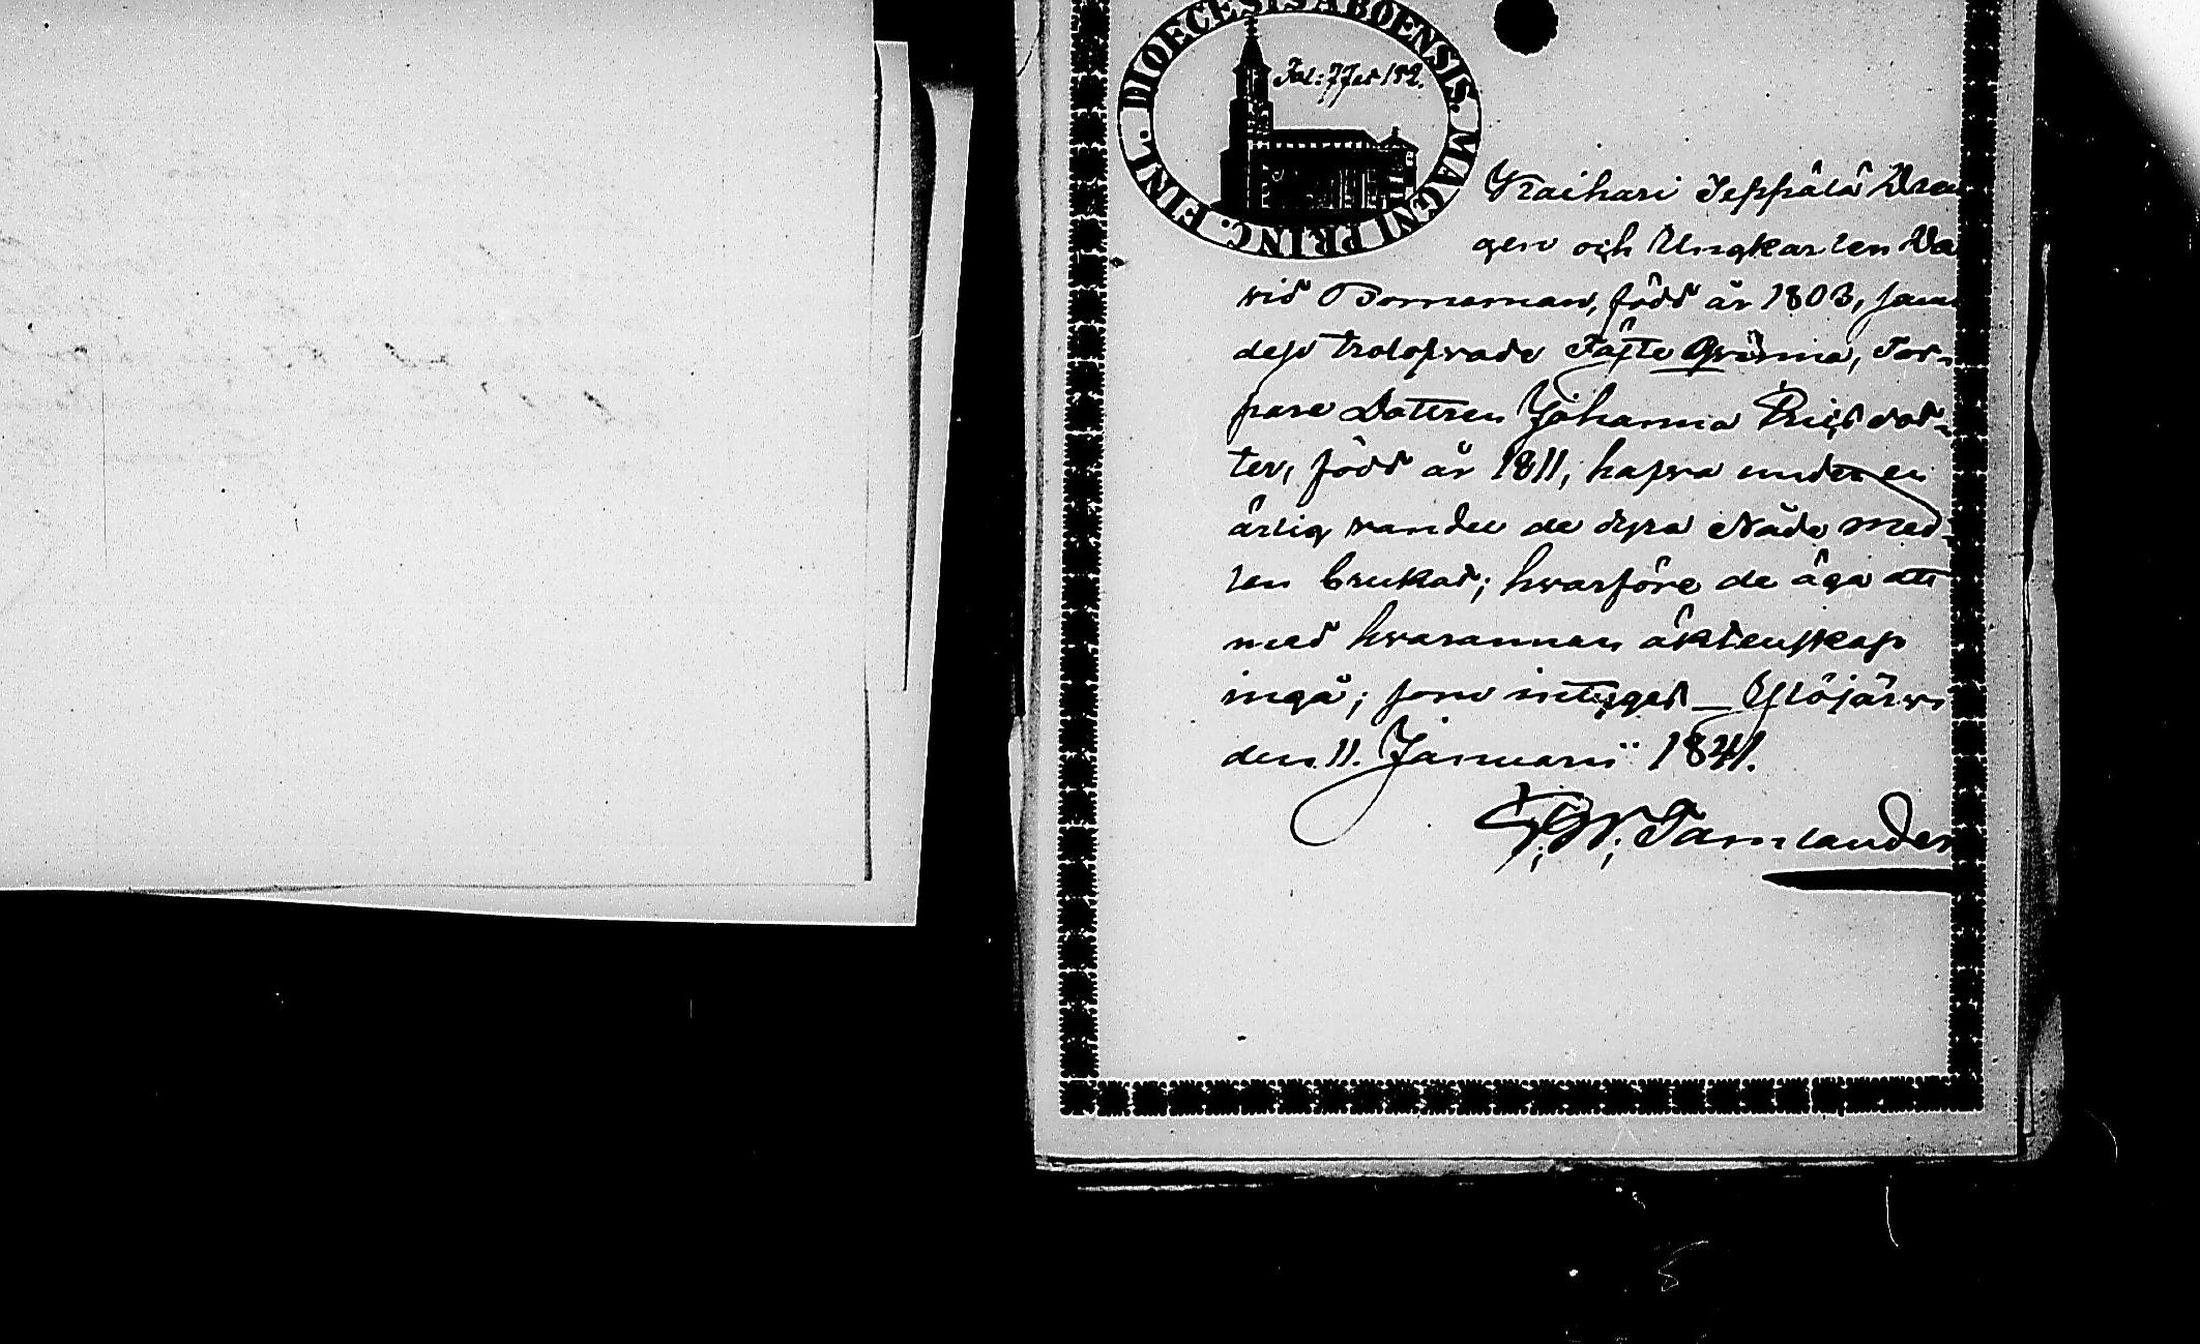 DIOECESIS ABOENSIS. MAGNI PRINC. FINL.
Fol: 77 et 182.
Kraihari Seppälä Drä
gen och Ungkarlen Da
vid Borneman, född år 1803, sam
dess trolofvade Fäste Qvinna, Tor-
pare Dottren Johanna Dot-
ter, född år 1811, hafva under en
ärlig vandel de dyra Nåde med-
len brukat; hvarföre de äga att
med hvarannan äktenskap
ingå; som intygas _ Ylöjärvi
den 11. Januarii 1841.
Tamlander